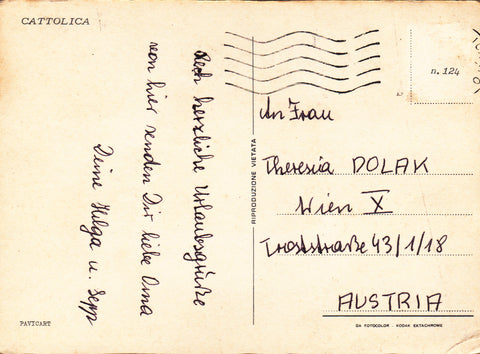 CATTOLICA
Recht herzliche Urlaubsgrüße
von hier senden Dir liebe Oma
Deine Helga u. Sepp
PAVICART
RIPRODUZIONE VIETATA
n. 124
An Frau
Theresia DOLAK
Wien X
Troststraße 43/1/18
AUSTRIA
DA FOTOCOLOR - KODAK EKTACHROME